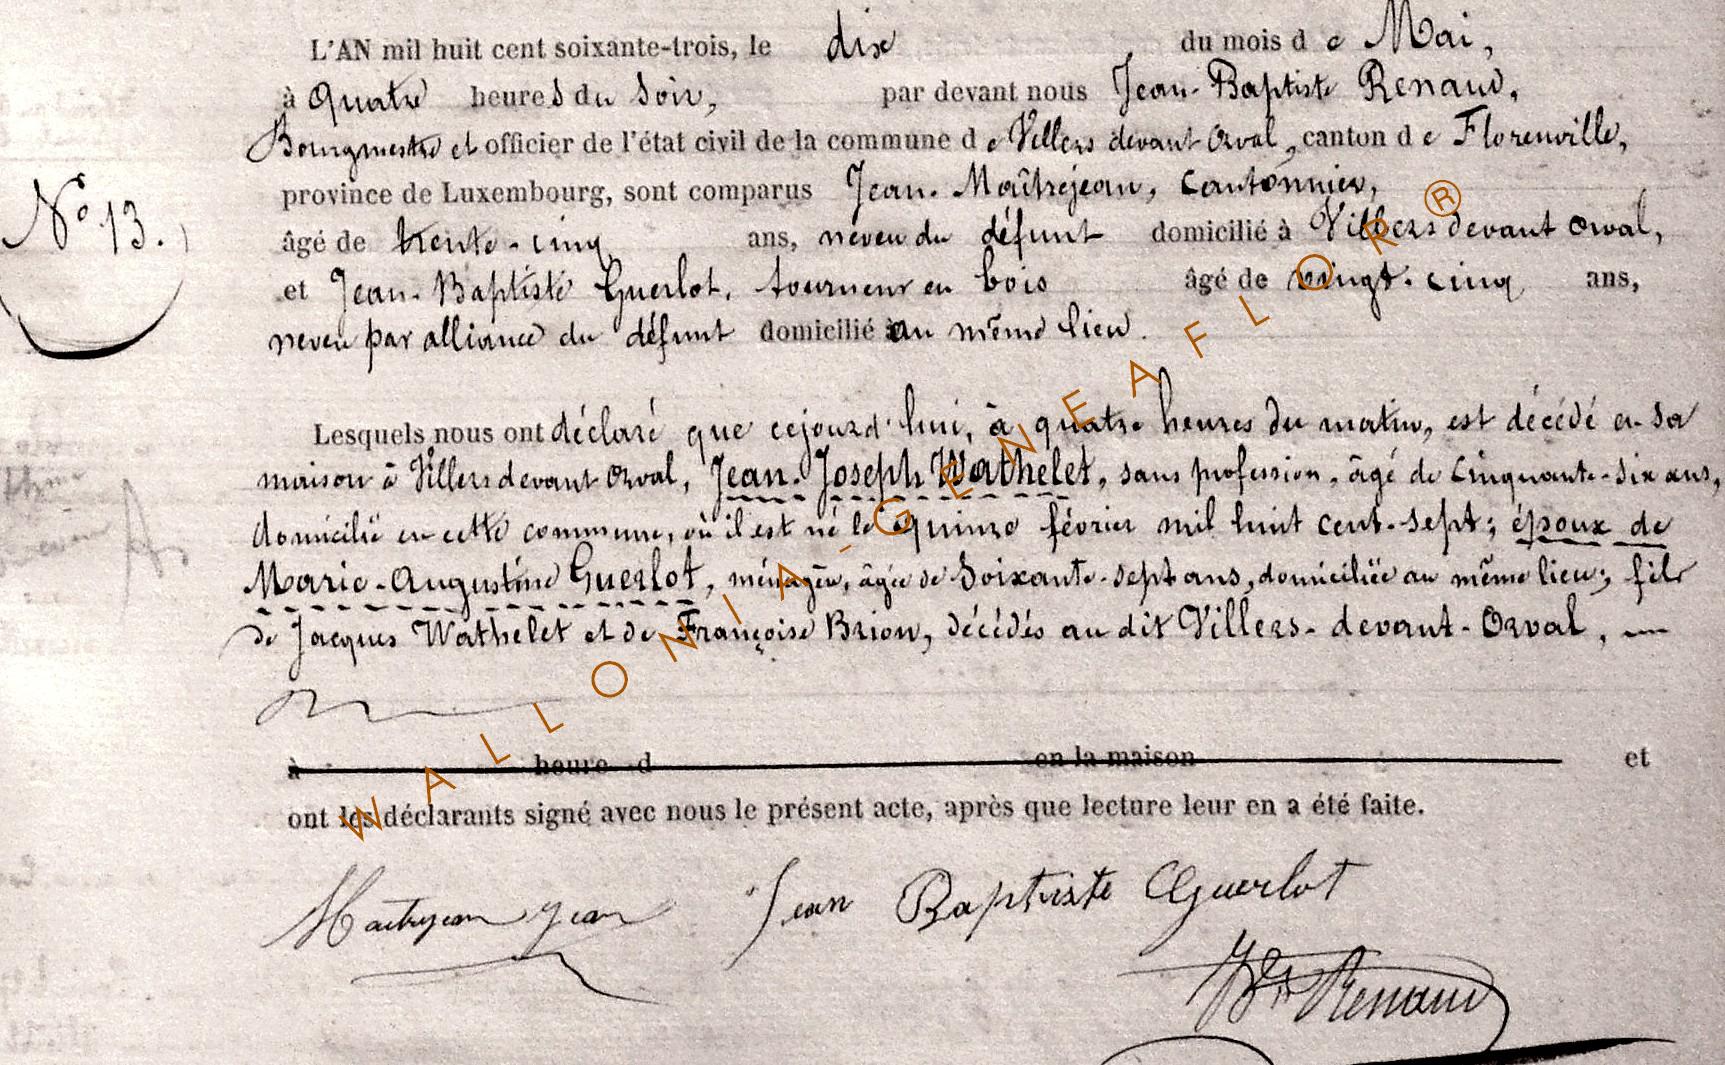 L'AN mil huit cent soixante-trois, le dix du mois de Mai,
à quatre heures du soir, par devant nous Jean-Baptiste Renaud,
Bourgmestre et officier de l'état civil de la commune de Villers devant Orval, canton de Florenville,
province de Luxembourg, sont comparus Jean Maîtrejean, cantonnier,
N° 13.
âgé de trente-cinq ans, neveu du défunt domicilié à Villers devant Orval,
et Jean-Baptiste Guerlot, tourneur en bois âgé de vingt-cinq ans,
neveu par alliance du défunt domicilié au même lieu.
Lesquels nous ont déclaré que cejourd'hui, à quatre heures du matin, est décédé en sa
maison à Villers devant Orval, Jean-Joseph Wathelet, sans profession, âgé de cinquante-six ans,
domicilié en cette commune, où il est né le quinze février mil huit cent-sept; époux de
Marie-Augustine Guerlot, ménagère, âgée de soixante-sept ans, domiciliée au même lieu; fils
de Jacques Wathelet et de Françoise Brion, décédés au dit Villers-devant-Orval, —
à heure d en la maison et
ont les déclarants signé avec nous le présent acte, après que lecture leur en a été faite.
Maitrejean Jean Jean Baptiste Guerlot
JBte Renaud
WALLONIA-GENEAFLOR®